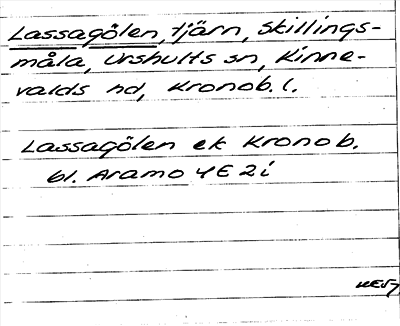 Lassagölen, tjärn, Skillings-
måla, Urshults sn, Kinne-
valds hd, Kronob. l.
Lassagölen ek Kronob.
bl. Aramo 4E 2i